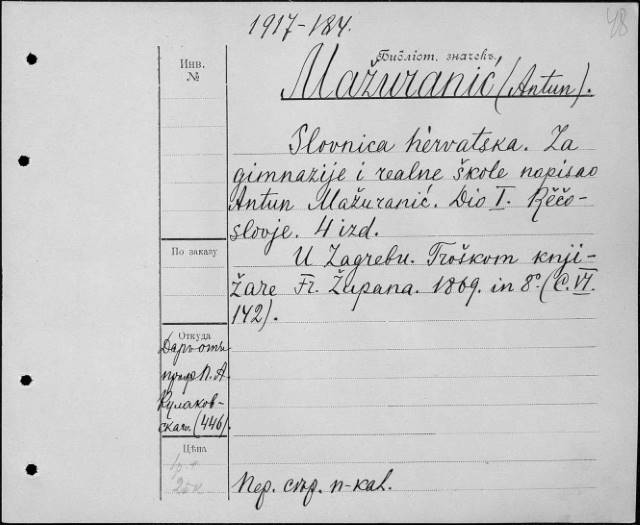 48
1917-184.
Библіот. значекъ.
Инв.
№
Mažuranić (Antun).
Slovnica hèrvatska. Za
gimnazije i realne škole napisao
Antun Mažuranić. Dio I. Rěčo-
slovje. 4 izd.
По заказу
U Zagrebu. Troškom knji-
žare Fr. Župana. 1869. in 8º. (C. VI.
142).
Откуда
Даръ отъ
проф. П. А.
Кулаков-
скаго. (446).
Цѣна
25 к
Пер. стр. п-каl.